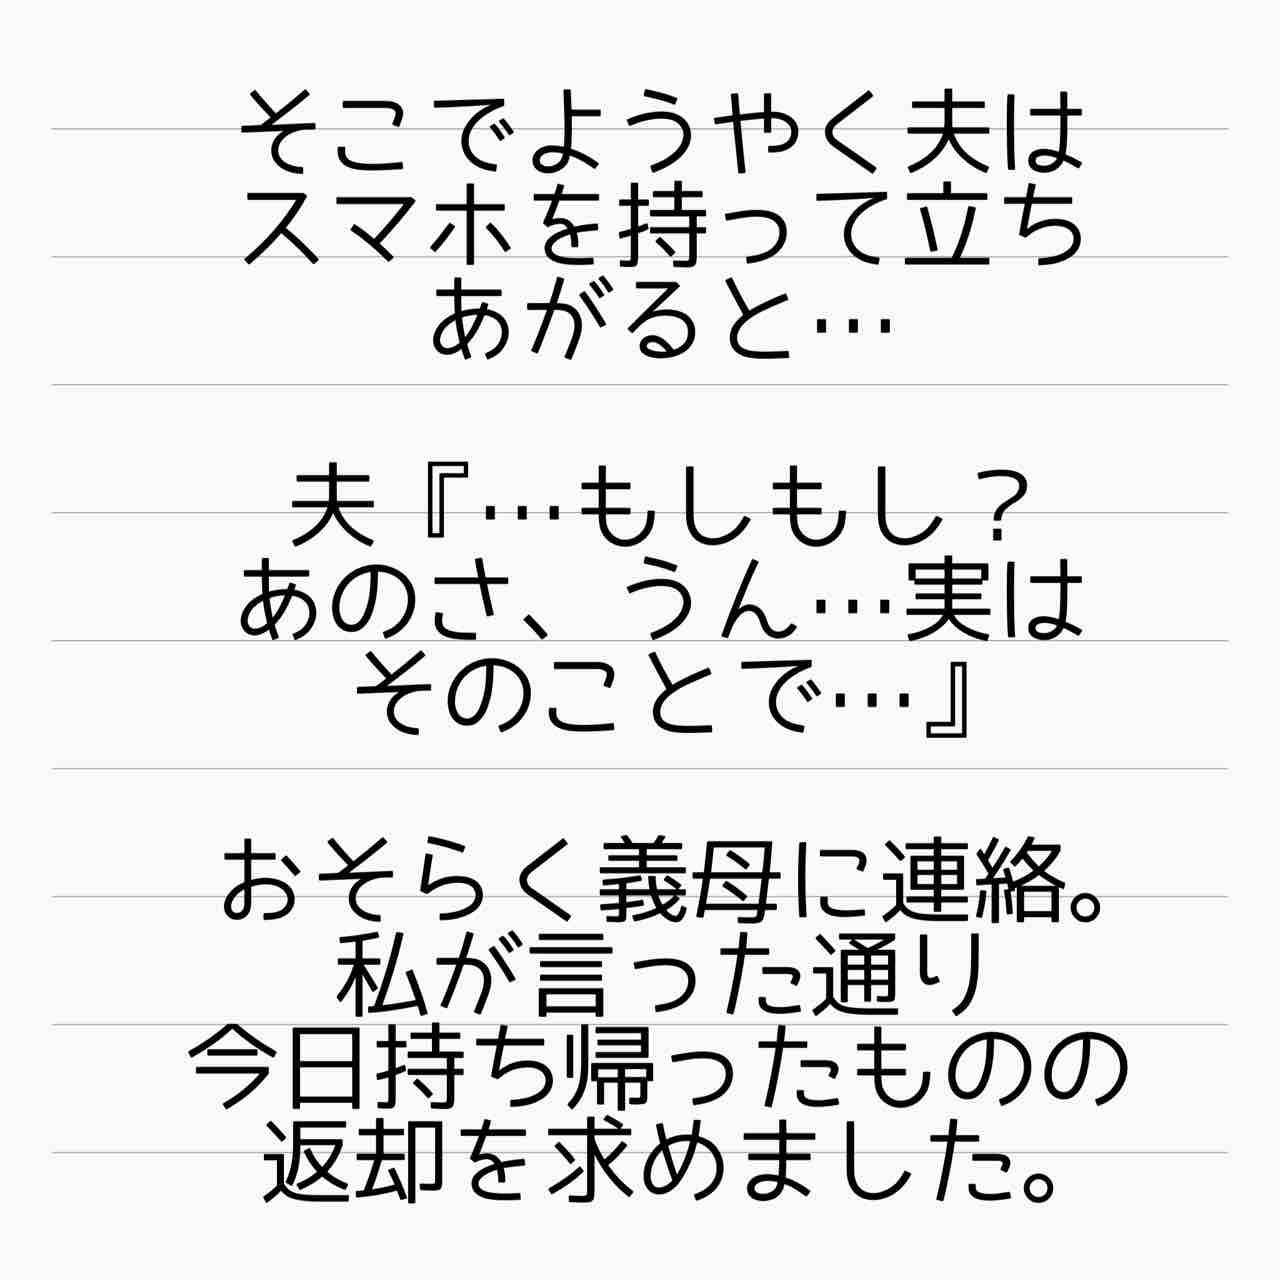 そこでようやく夫は
スマホを持って立ち
あがると…
夫『…もしもし？
あのさ、うん…実は
そのことで…』
おそらく義母に連絡。
私が言った通り
今日持ち帰ったものの
返却を求めました。